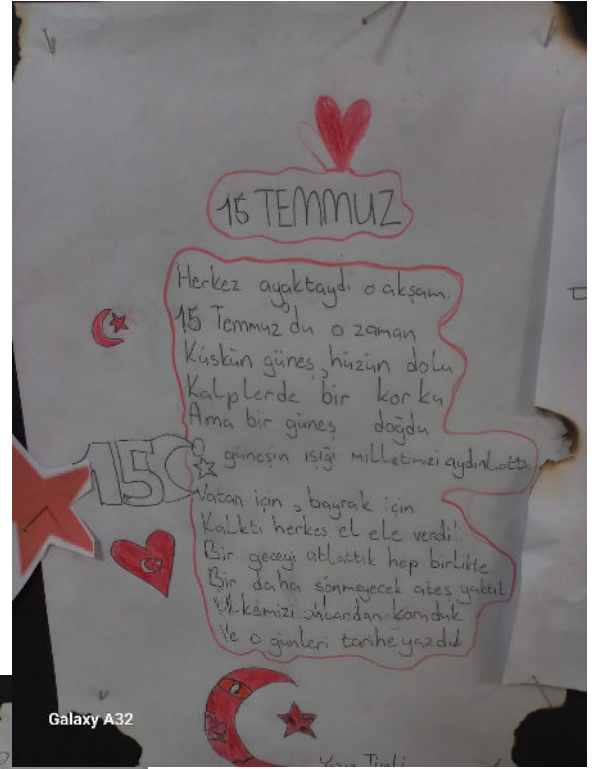 15 TEMMUZ
Herkez ayaktaydı o akşam.
15 Temmuz'du o zaman
Küskün güneş, hüzün dolu
Kalplerde bir korku
Ama bir güneş doğdu
O güneşin ışığı milletimizi aydınlattı
150
Vatan için, bayrak için
Kalktı herkes el ele verdi!
Bir geceyi atlattık hep birlikte
Bir daha sönmeyecek ateş yaktık
Ülkemizi onlardan koruduk
Ve o günleri tarihe yazdık
Galaxy A32